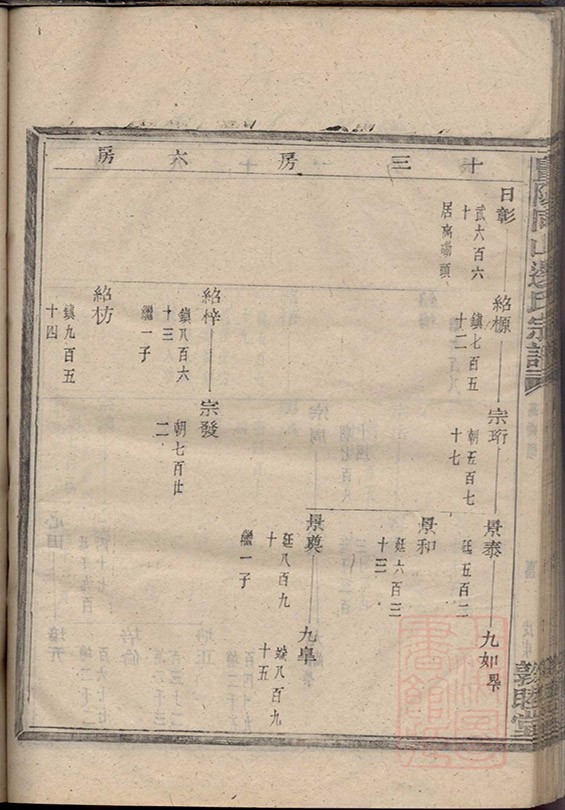 十三房　　十六房
日彰
武六百六
十
居高磡頭
紹榞
鎮七百五
十二
宗珩
朝五百七
十七
景泰
廷五百二
九如 舉
景和
廷六百三
十三
景奠
廷八百九
十
繼一子
九皐
燦八百九
十五
紹梓
鎮八百六
十三
繼一子
宗發
朝七百廿
二
紹枋
鎮九百五
十四
山邊氏宗譜
敦睦堂